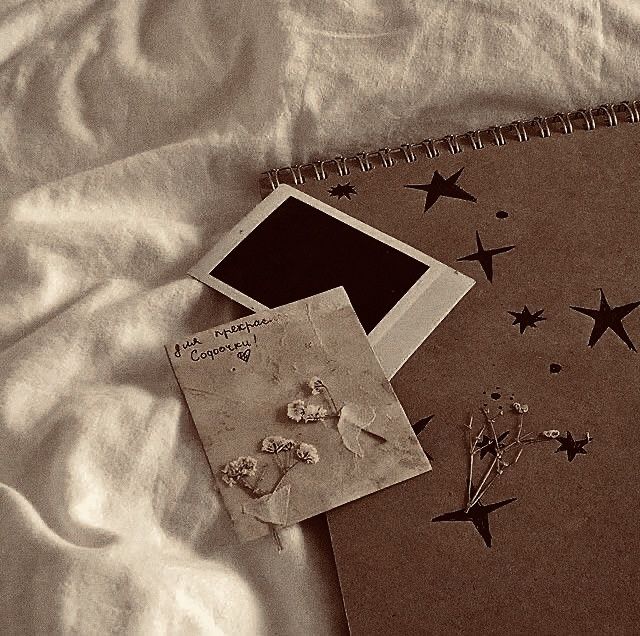 для прекрасн
Софочки!